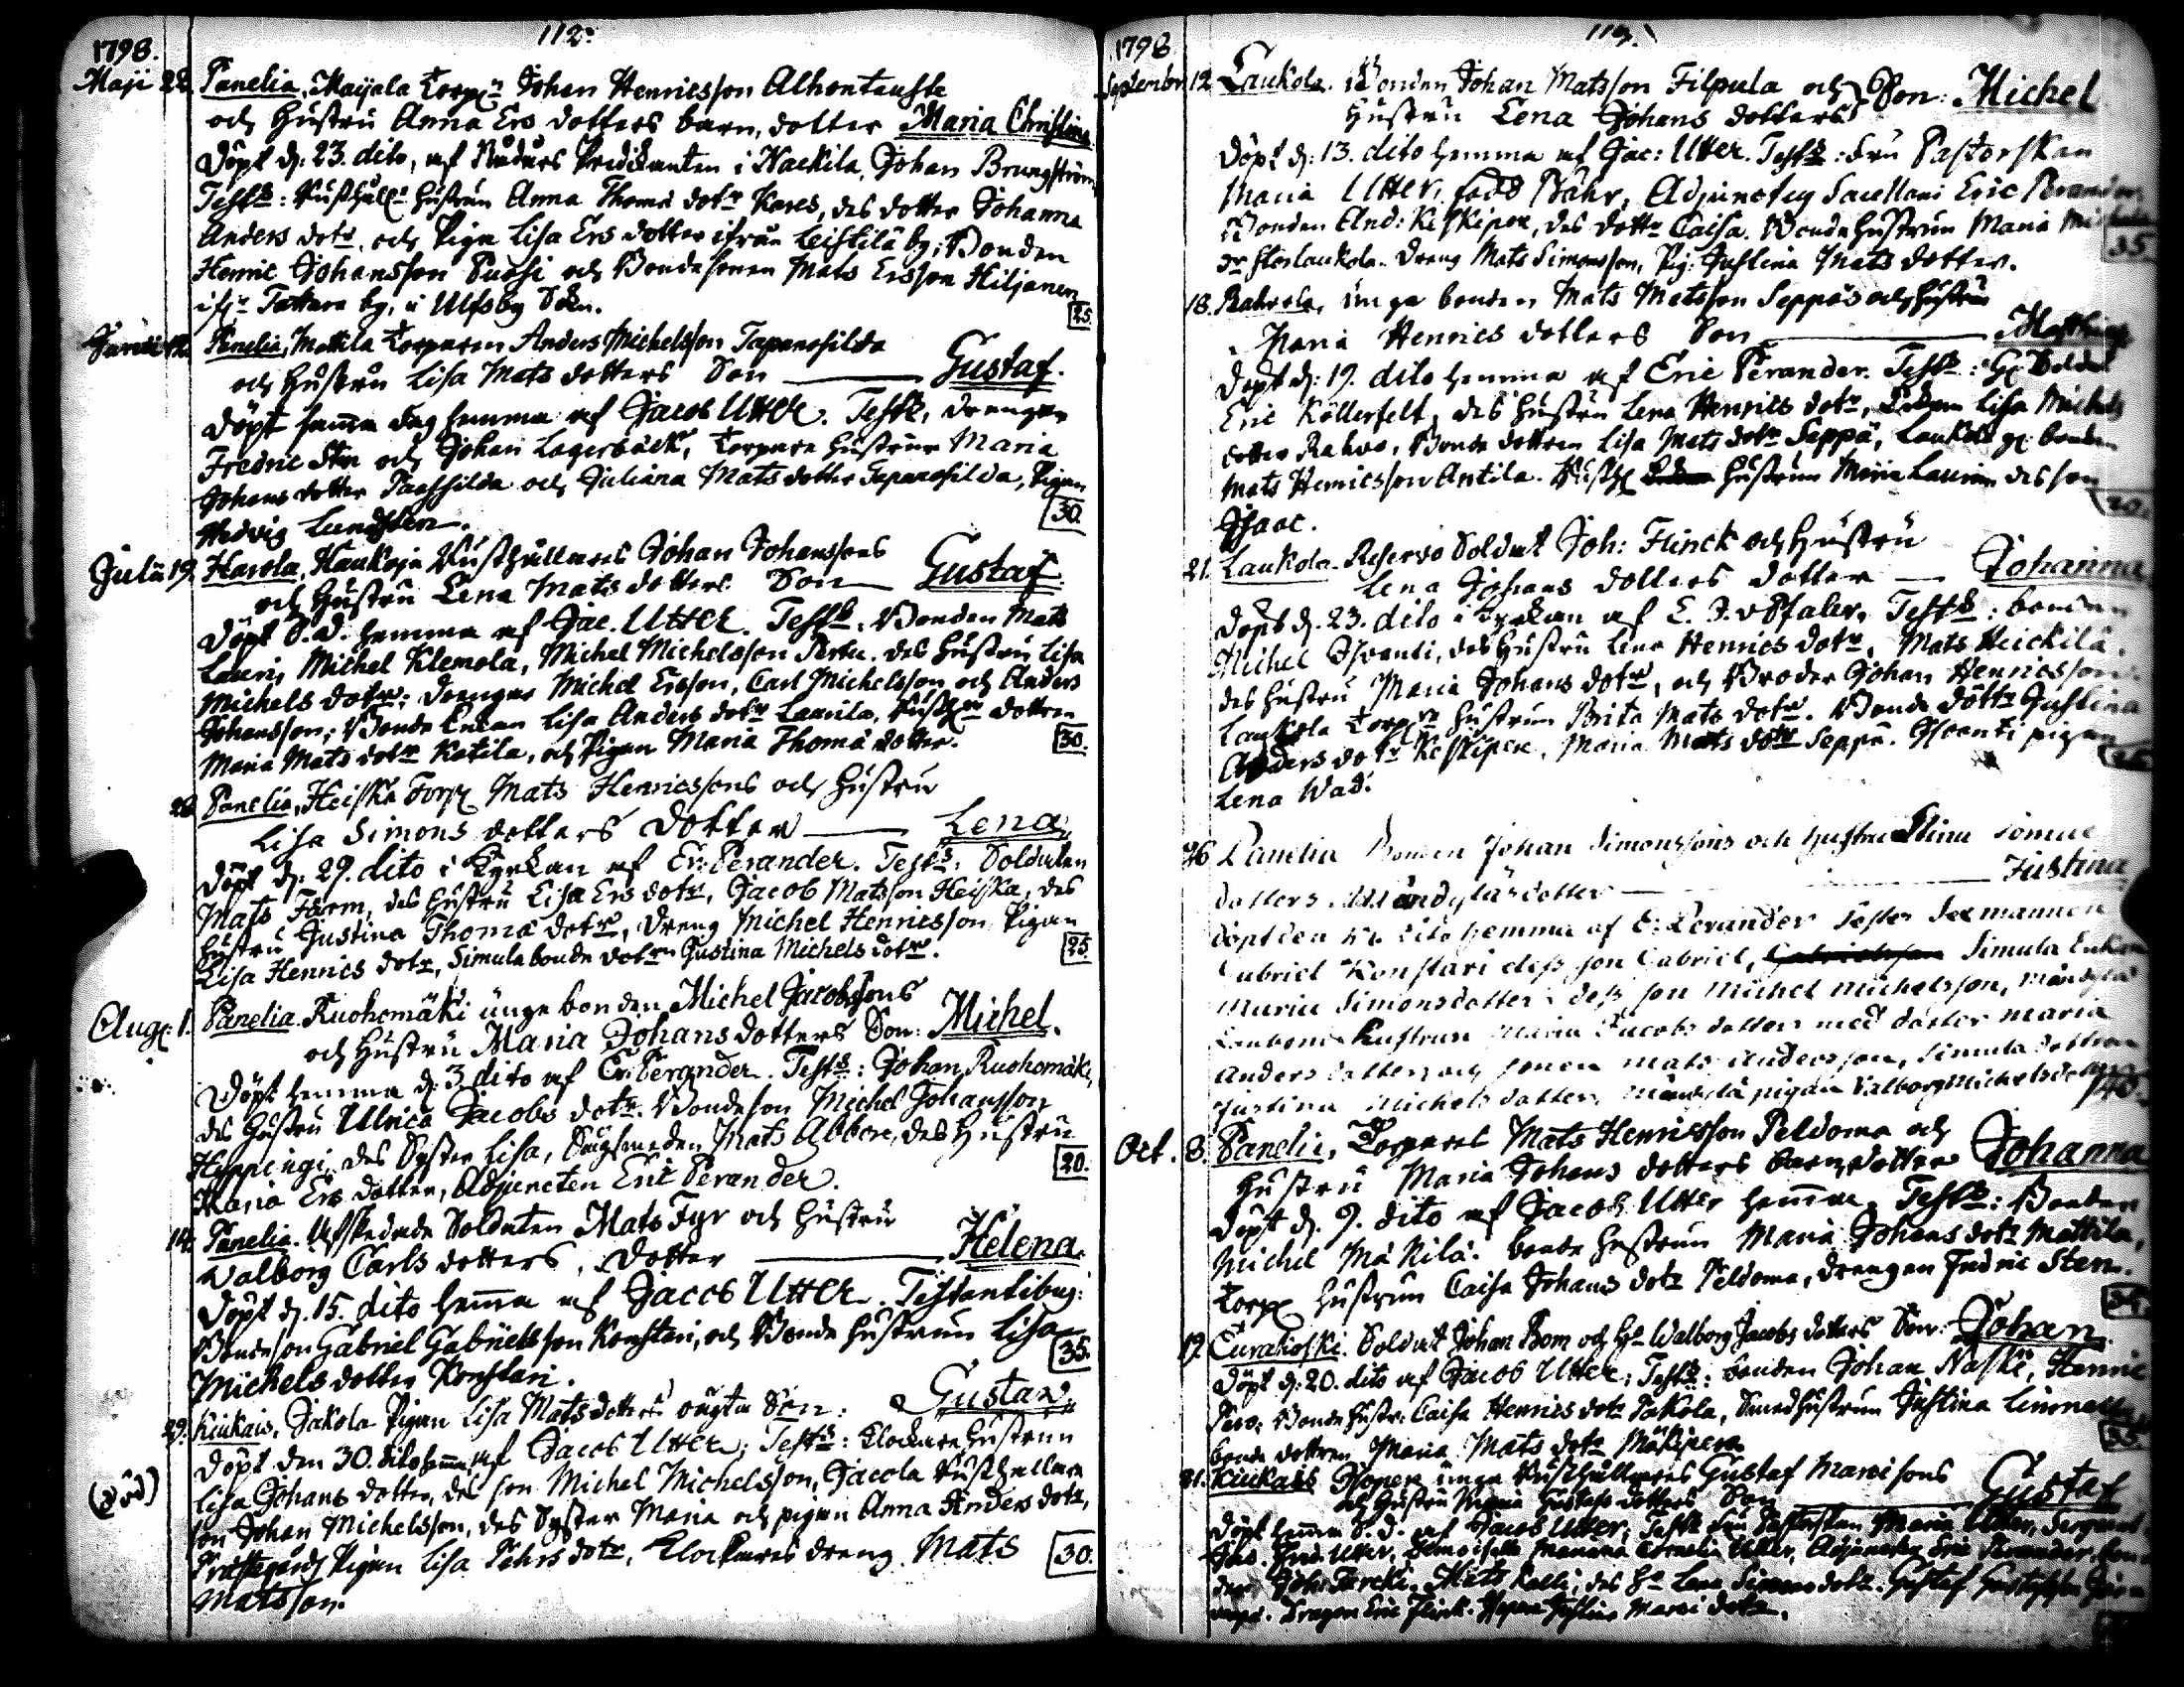 112.
1798.
Maji 22. Panelia, Maijala Torp. Johan Henricsson Alhontausta
och hustru Anna Ers dotters barn, dotter Maria Christina
döpt d: 23. dito, af Predikanten i Nackila, Johan Brungström
Test: hustrun Anna Thomæ dotr Kares, des dotter Johanna
Anders dotr, och Pigan Lisa Ers dotter ifrån Leistilä by, Bonden
Henric Johansson Puosi och Bondesonen Mats Ersson Hiljanen
ifr: Tattara by, i Ulfsby Sokn.
25
Junii 12. Panelia, Mattila Torparen Anders Michelsson Tapanosilda
och hustru Lisa Mats dotters Son Gustaf.
döpt samma dag hemma af Jacob Utter. Test:, drengar
Fredric Sten och Johan Lagerbäck, Torpare hustrun Maria
Johans dotter och Juliana Mats dotter Tapanosilda, Pigan
Hedvig Lundsten.
30.
Julii 19. Harola, Haukoja Rusthållares Johan Johanssons
och hustru Lena Mats dotters Son Gustaf.
döpt S.D. hemma af Jac. Utter. Test:, Bonden Mats
Lauri, Michel Klemola, Michel Michelsson Perttu. des hustru Lisa
Michels dotr; drengar Michel Ersson, Carl Michelsson och Anders
Johansson; Bonde Enkan Lisa Anders dotr Laurila, dottren
Maria Mats dotr Katila, och Pigan Maria Thomæ dotter.
30.
28. Panelia, Heiska Torp. Mats Henricssons och hustru
Lisa Simons dotters dotter Lena
döpt d: 29. dito i Kyrkan af Er: Perander. Test: Soldaten
Mats Farm, des hustru Lisa Ers dotr, Jacob Matsson Heiska, des
hustru Justina Thomæ dotr, dreng Michel Henricsson, Pigan
Lisa Henrics dotr, Simula bonde dotren Justina Michels dotr.
25
Aug: 1. Panelia. Ruohomäki unge bonden Michel Jacobssons
och hustru Maria Johans dotters Son: Michel.
Döpt hemma d: 3 dito af Er: Perander. Test: Johan Ruohomäki,
des hustru Ulrica Jacobs dotr. Bondeson Michel Johansson
Hyppingi, des Syster Lisa, Mats Abbore, des hustru
Maria Ers dotter, Adjuncten Eric Perander.
20.
14. Panelia. Afskedade Soldaten Mats Fyr och hustru
Walborg Carls dotters, dotter Helena.
döpt d. 15. dito hemma af Jacob Utter. Testantibus:
Bondeson Gabriel Gabrielsson Konstari, och Bonde hustrun Lisa
Michels dotter Konstari.
35.
29. Kiukais, Jakola Pigan Lisa Mats dotters oägta Son: Gustav.
döpt den 30. dito hemma af Jacob Utter; Test: Klockare hustrun
Lisa Johans dotter, des son Michel Michelsson, Jacola Rusthållare
son Johan Michelsson, des Syster Maria och pigan Anna Anders dotr,
Prästegårds Pigan Lisa Pehrs dotr, Klockares dreng Mats
Matsson.
30.
(död)
113.
1798
September 12. Laukola. Bonden Johan Matsson Filpula och Son: Michel
hustru Lena Johans dotters
döpt d: 13. dito hemma af Jac: Utter. Test: Fru Pastorskan
Maria Utter, född Bahr, Adjunctus Sacellani Eric Perander,
Bonden And: Keskipere, des dottr Caisa. Bonde hustrun Maria
Storlaukola. dreng Mats Simonsson, Pig. Justina Mats dotter.
35.
18. Rahvola, unga bonden Mats Matsson Seppäs och hustru
Maria Henrics dotters Son Matthias
döpt d: 19. dito hemma af Eric Perander. Test:
Eric Källerfelt, des hustru Lena Henrics dotr, Enkan Lisa Michels
dotter Rahvo, Bonde dottren Lisa Mats dotr Seppä, Laukola bonden
Mats Henricsson Antila. hustrun Maria Laurin des son
Isaac.
20.
21. Laukola. Reservo Soldat Joh: Flinck och hustru
Lena Johans dotters dotter Johanna
döpt d. 23. dito i Kyrkan af E. J. v Pfaler. Test: bonden
Michel Isvanti, des hustru Lena Henrics dotr, Mats Heickilä,
des hustru Maria Johans dotr, och Broder Johan Henricsson
Laukola Torp. hustrun Brita Mats dotr. Bonde dottr Justina
Anders dotr Keskipere, Maria Mats dotr Seppä. Isvanti pigan
Lena Wad.
26. Panelia Bonden Johan Simonssons och hustru Stina Simons
dotters Mändylä dotter Justina
döpt den dito hemma af E: Perander Testes Sexmannen
Gabriel Konstari dess son Gabriel, Simula Enkan
Maria Simonsdotter dess son Michel Michelsson, Mändylä
hustrun Maria Jacobs dotter med dotter Maria
Anders dotter och sonen Mats Andersson, Simula dottren
Justina Michels dotter, Mändylä pigan Valborg Michelsdotter
40.
Oct. 8. Panelia, Torparen Mats Henricsson Peldoma och
hustru Maria Johans dotters barn, dotter Johanna
döpt d. 9. dito af Jacob Utter hemma. Test: Bonden
Michel Mä Nilä. bonde hustrun Maria Johans dotr Mattila,
Torp. hustrun Caisa Johans dotr Peldoma, drengen Fredric Sten.
19. Eurakoski. Soldat Johan Bom och hu Walborg Jacobs dotters Son: Johan.
döpt d: 20. dito af Jacob Utter; Test: bonden Johan Naski, Henric
Pero; Bonde hustr: Caisa Henrics dotr Pakola, Smed hustrun Justina
bonde dottren Maria Mats dotr Mäkipere.
35
31. Kiukais Ylopere unga Rusthållares Gustaf Marcissons
och hustru Maria Gustafs dotters Son Gustaf
döpt hemma S.D. af Jacob Utter; Test: Fru Pastorskan Maria Utter, Sergeant
Jac. Fred. Utter, Demoiselle Mariana Cornelia Utter, Adjunctus Eric Perander,
Joh: Forcki, Mats Kalli, des hu Lena Simons dotr. Gustaf Gustafsson
Dragon Eric Flinck. Justina Marci dotr.